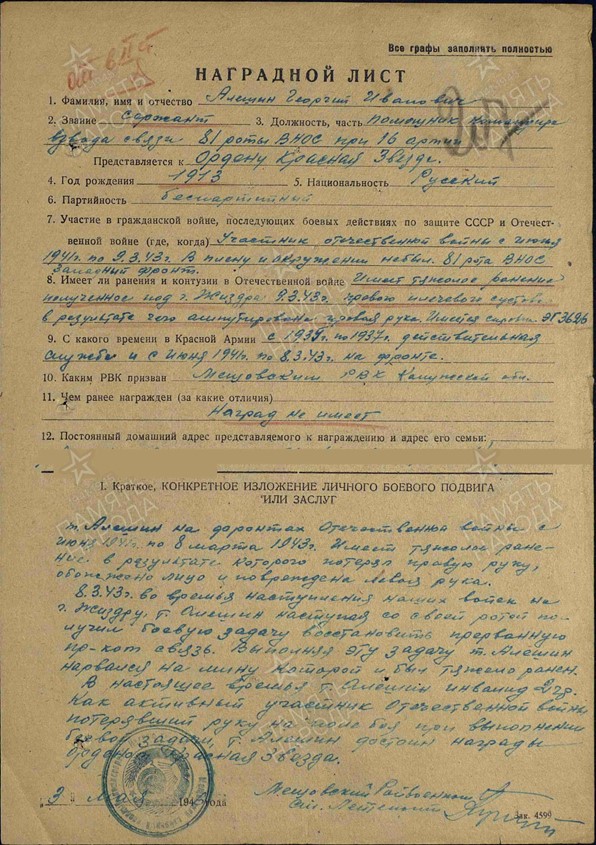 Все графы заполнять полностью
НАГРАДНОЙ ЛИСТ
1. Фамилия, имя и отчество Алешин Георгий Иванович
2. Звание сержант 3. Должность, часть помощник командира
взвода связи 81 роты ВНОС при 16 армии
Представляется к Ордену Красная Звезда.
4. Год рождения 1913 5. Национальность Русский
6. Партийность беспартийный
7. Участие в гражданской войне, последующих боевых действиях по защите СССР и Отечест-
венной войне (где, когда) Участник отечественной войны с июня
1941г. по 9.3.43г. В плену и окружении небыл. 81 рота ВНОС
Западный фронт.
8. Имеет ли ранения и контузии в Отечественной войне Имеет тяжолое ранение
полученное под г. Жиздра 9.3.43г. правого плечевого сустава
в результате чего ампутирована правая рука. Имеется справка ЭГ 3626
9. С какого времени в Красной Армии с 1935г. по 1937г. действительная
служба и с июня 1941г. по 8.3.43г. на фронте.
10. Каким РВК призван Мещовским РВК Калужской обл.
11. Чем ранее награжден (за какие отличия)
Наград не имеет
12. Постоянный домашний адрес представляемого к награждению и адрес его семьи:
I. Краткое, КОНКРЕТНОЕ ИЗЛОЖЕНИЕ ЛИЧНОГО БОЕВОГО ПОДВИГА
ИЛИ ЗАСЛУГ
т. Алешин на фронтах Отечественной войны с
июня 1941г. по 8 марта 1943г. Имеет тяжолое ране-
ние в результате которого потерял правую руку,
обожжено лицо и повреждена левая рука.
8.3.43г. во время наступления наших войск на
г. Жиздру, т. Алешин наступая со своей ротой по-
лучил боевую задачу восстановить прерванную
связь. Выполняя эту задачу т. Алешин
нарвался на мину которой и был тяжело ранен.
В настоящее время т. Алешин инвалид 2 гр.
Как активный участник Отечественной войны
потерявший руку на поле боя при выполнении
боевой задачи, т. Алешин достоин награды
ордена Красная Звезда.
3 194 года
Мещовский Райвоенком
Зак. 4599
ПАМЯТЬ НАРОДА